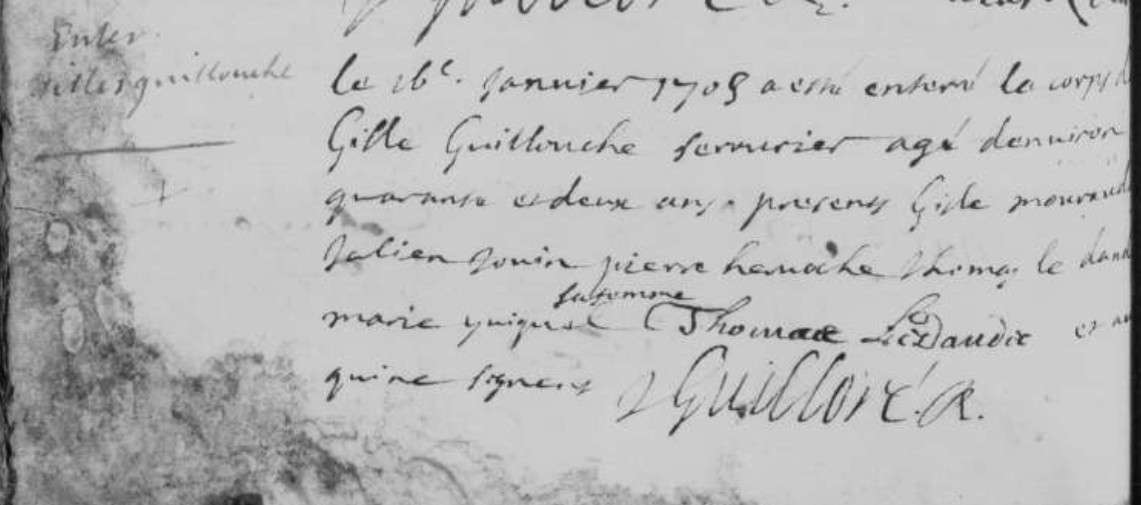 Enter.
Gilles guillouche
le 16e. Janvier 1705 a esté enterré le corps d
Gille Guillouche serrurier agé denviron
quarante et deux ans. presents Gille mouraud
Julien Jouin pierre hamoche Thomas le dand
sa femme
marie guigu Thomas Le Daudic et au
qui ne signent J Guilloré. R.